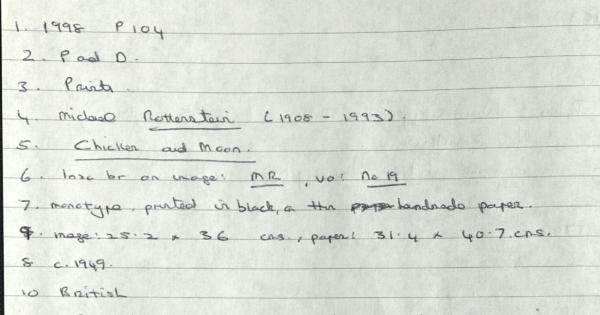 1. 1998 P104
2. P and D.
3. Prints.
4. Michael Rothenstein (1908 - 1993).
5. Chicken and Moon.
6. Insc br on image: MR, vo: No 19
7. monotype, printed in black, on thin handmade paper.
9. image: 25.2 x 36 cms., paper: 31.4 x 40.7 cms.
8 c.1949.
10 British